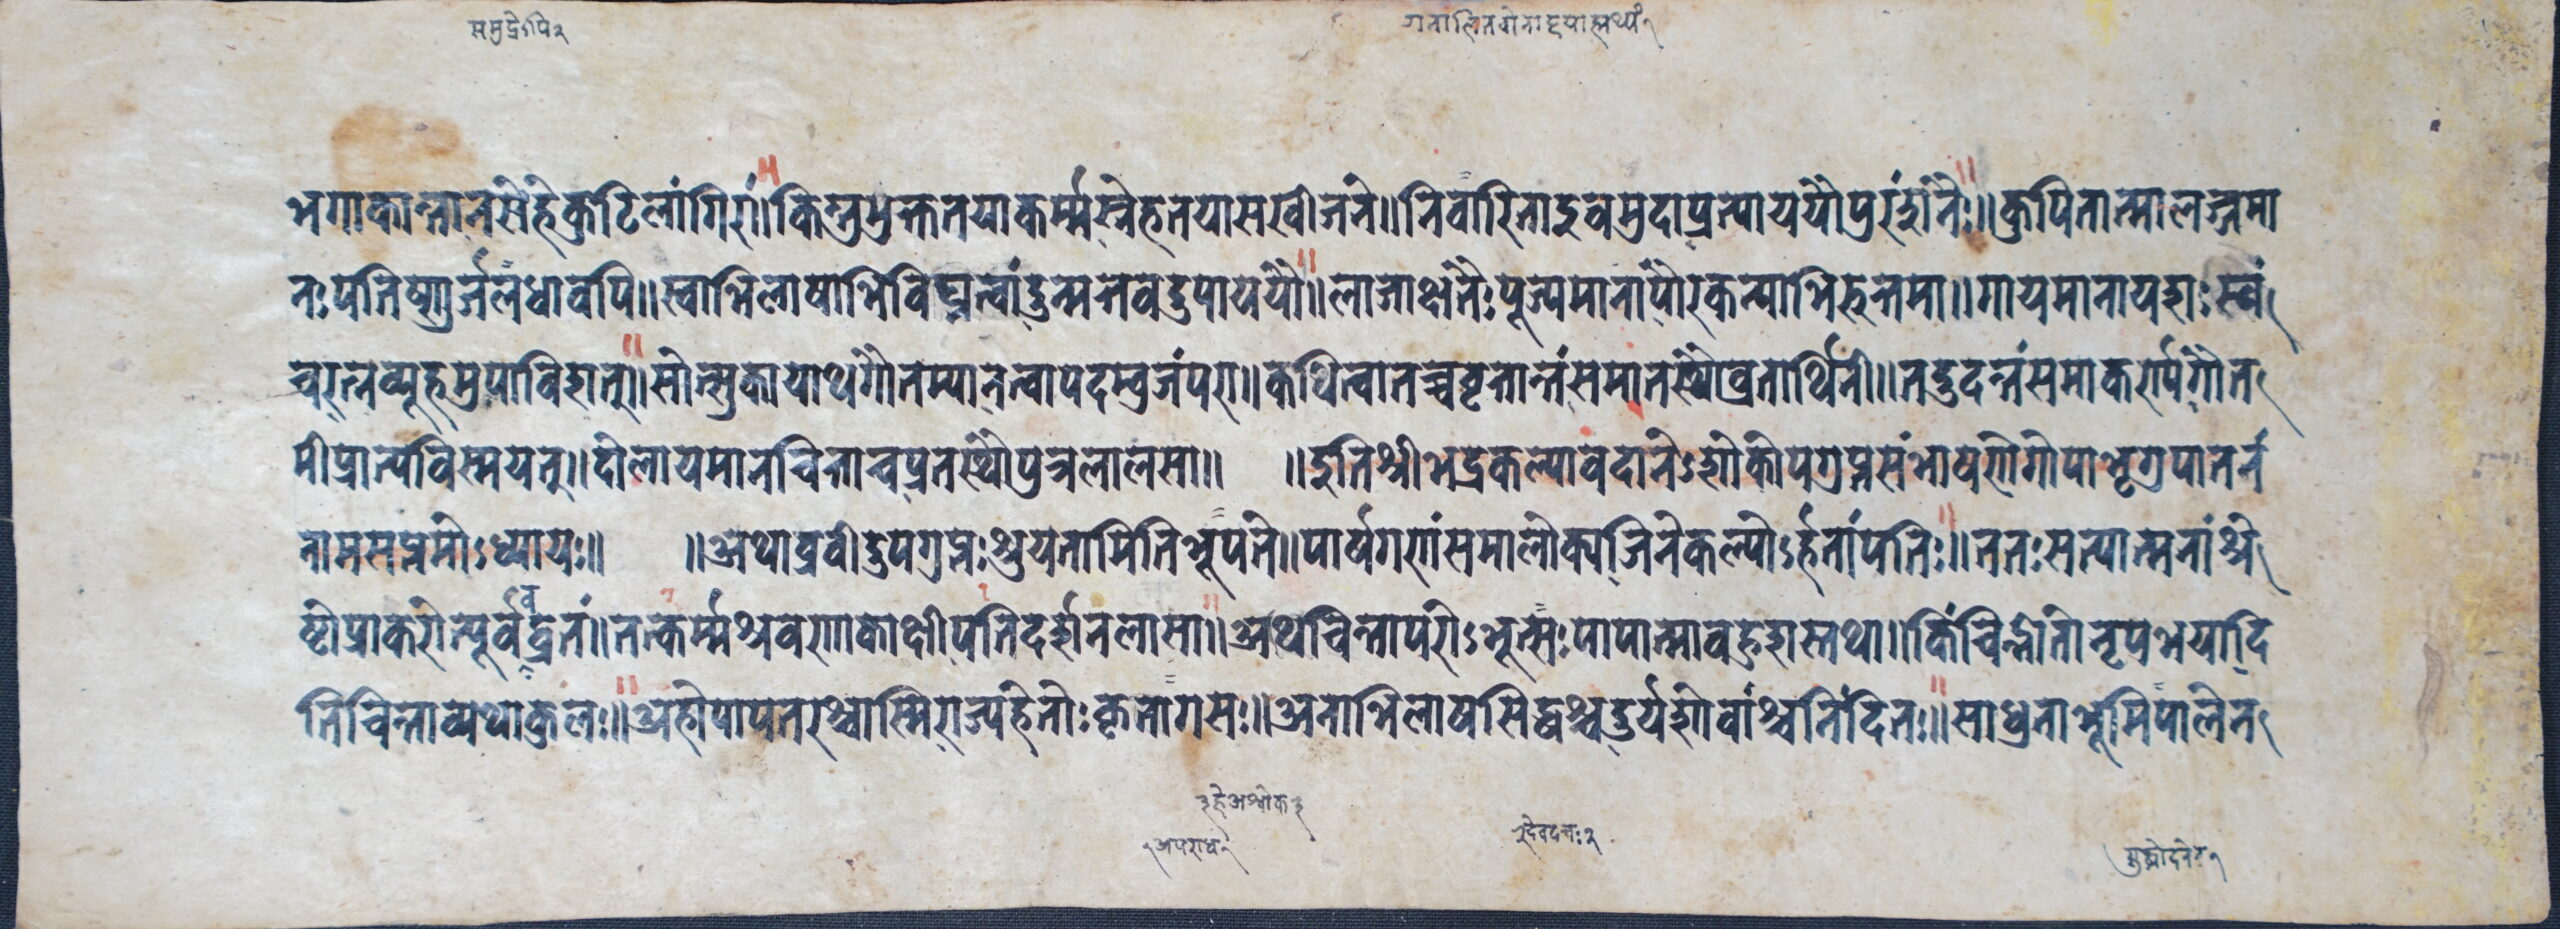 समुद्रेऽपि २
भगाकान्तान सेहे कुटिलां गिरां॥ किमुत्रमुक्तनयाकर्म्मस्नेहनयासखीजने॥ निवारिताइवमुदाप्रत्याययौपुरंशनैः॥ कुपितान्मालज्जमा
नः पतिष्णुर्जलधावपि॥ स्वाभिलाषाभिविघ्नत्वांदुन्मत्तवदुपाययौ॥ लाजाक्षतैः पूज्यमानापौरकन्याभिरुत्तमा॥ गायमानायशः स्वं
चरत्नव्यूहमुपाविशत्॥ सोत्सुकायाथगौतम्यानत्वापदम्बुजंपरा॥ कथित्वातच्चवृत्तान्तंसमातस्थौव्रतार्थिनी॥ तदुदन्तंसमाकर्ण्यगौत
मीप्रात्यविस्मयत्॥ दोलायमानचित्ताचप्रतस्थौपुत्रलालसा॥ ॥ इतिश्रीभद्रकल्पावदानेऽशोकोपगुप्तसंभाषणेगोपाभृगुपातनं
नामसप्तमोऽध्यायः॥ ॥ अथाब्रवीदुपगुप्तः श्रुयतामितिभूपते॥ पार्षगणंसमालोक्यजिनकल्पोऽर्हतांपतिः॥ ततः सत्यात्मनांश्रे
ष्टोप्राकरोत्पूर्ववद्व्रतं॥ तत्कर्म्मश्रवणाकांक्षीपतिदर्शनलासा॥ अथचिन्तापरोऽभूत्सः पापात्मावहशस्तथा॥ किंचिद्भीतोनृपभयादि
तिचिन्ताव्यथाकुलः॥ अहोपापतरश्चास्मिराज्यहेतोः कृतागसः॥ अनाभिलाषसिद्धश्चदुर्यशोवांश्चनिंदितः॥ साधुनाभूमिपालेन
३ हे अशोक ३
१ अपराध १
२ देवदत्तः २